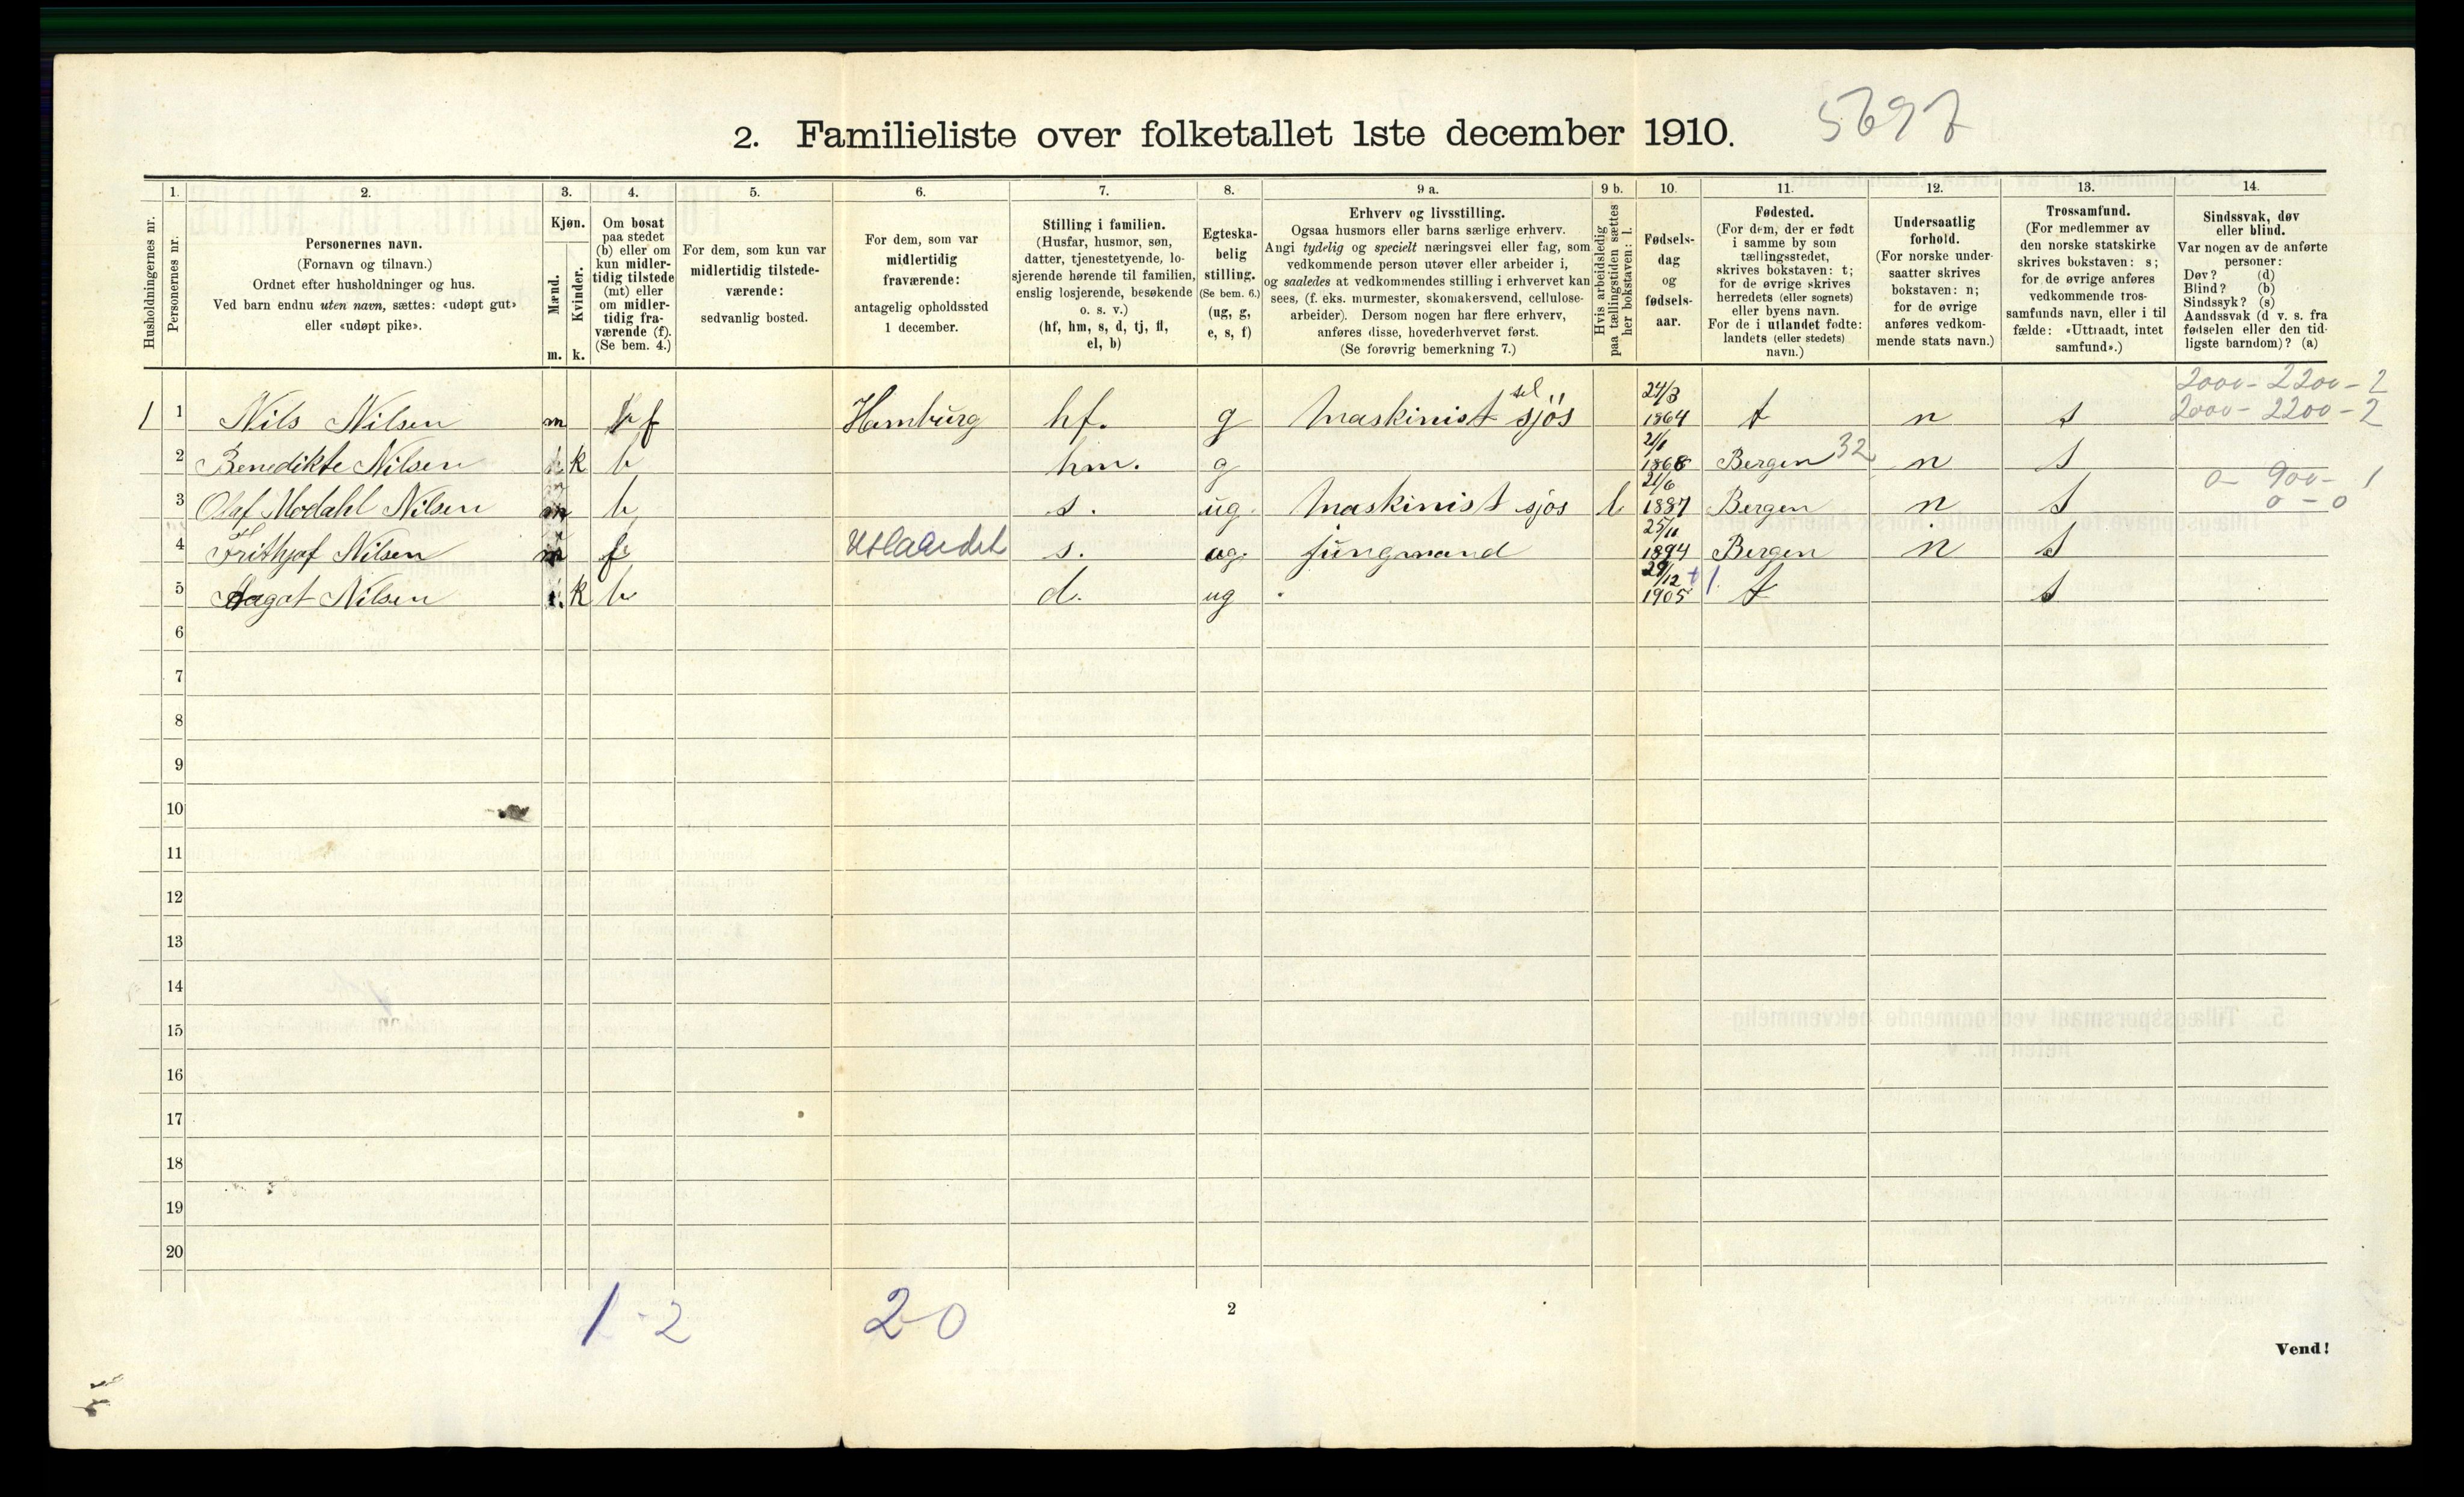 2. Familieliste over folketallet 1ste december 1910. 5697
1. 2. 3. 4. 5. 6. 7. 8. 9 a. 9 b. 10. 11. 12. 13. 14.
Husholdningernes nr.
Personernes nr.
Personernes navn.
(Fornavn og tilnavn.)
Ordnet efter husholdninger og hus.
Ved barn endnu uten navn, sættes: «udøpt gut»
eller «udøpt pike».
Kjøn.
Mænd.
Kvinder.
m. k.
Om bosat
paa stedet
(b) eller om
kun midler-
tidig tilstede
(mt) eller
om midler-
tidig fra-
værende (f).
(Se bem. 4.)
For dem, som kun var
midlertidig tilstede-
værende:
sedvanlig bosted.
For dem, som var
midlertidig
fraværende:
antagelig opholdssted
1 december.
Stilling i familien.
(Husfar, husmor, søn,
datter, tjenestetyende, lo-
sjerende hørende til familien,
enslig losjerende, besøkende
o. s. v.)
(hf, hm, s, d, tj, fl,
el, b)
Egteska-
belig
stilling.
(Se bem. 6.)
(ug, g,
e, s, f)
Erhverv og livsstilling.
Ogsaa husmors eller barns særlige erhverv.
Angi tydelig og specielt næringsvei eller fag, som
vedkommende person utøver eller arbeider i,
og saaledes at vedkommendes stilling i erhvervet kan
sees, (f. eks. murmester, skomakersvend, cellulose-
arbeider). Dersom nogen har flere erhverv,
anføres disse, hovederhvervet først.
(Se forøvrig bemerkning 7.)
Hvis arbeidsledig
paa tællingstiden sættes
her bokstaven: l.
Fødsels-
dag
og
fødsels-
aar.
Fødested.
(For dem, der er født
i samme by som
tællingsstedet,
skrives bokstaven: t;
for de øvrige skrives
herredets (eller sognets)
eller byens navn.
For de i utlandet fødte:
landets (eller stedets)
navn.)
Undersaatlig
forhold.
(For norske under-
saatter skrives
bokstaven: n;
for de øvrige
anføres vedkom-
mende stats navn.)
Trossamfund.
(For medlemmer av
den norske statskirke
skrives bokstaven: s;
for de øvrige anføres
vedkommende tros-
samfunds navn, eller i til
fælde: «Uttraadt, intet
samfund».)
Sindssvak, døv
eller blind.
Var nogen av de anførte
personer:
Døv? (d)
Blind? (b)
Sindssyk? (s)
Aandssvak (d v. s. fra
fødselen eller den tid-
ligste barndom)? (a)
2000 - 2200 - 2
1 1 Nils Nilsen m f Hamburg hf. g Maskinist tsjös 24/3 1864 t n s 2000 - 2200 - 2
2 Benedikte Nilsen k b hm. g 21/1 1868 Bergen 32 n s
3 Olaf Modahl Nilsen m b s. ug. Maskinist sjøs l 21/6 1887 Bergen n s 0 - 900 - 1
0 - 0
4 Frithjof Nilsen m f Utlandet s. ug. jungmand 25/11 1894 Bergen n s
5 Aagot Nilsen k b d. ug 29/12 1905 t s
6
7
8
9
10
11
12
13
14
15
16
17
18
19
20
1 - 2 2-0
2
Vend!